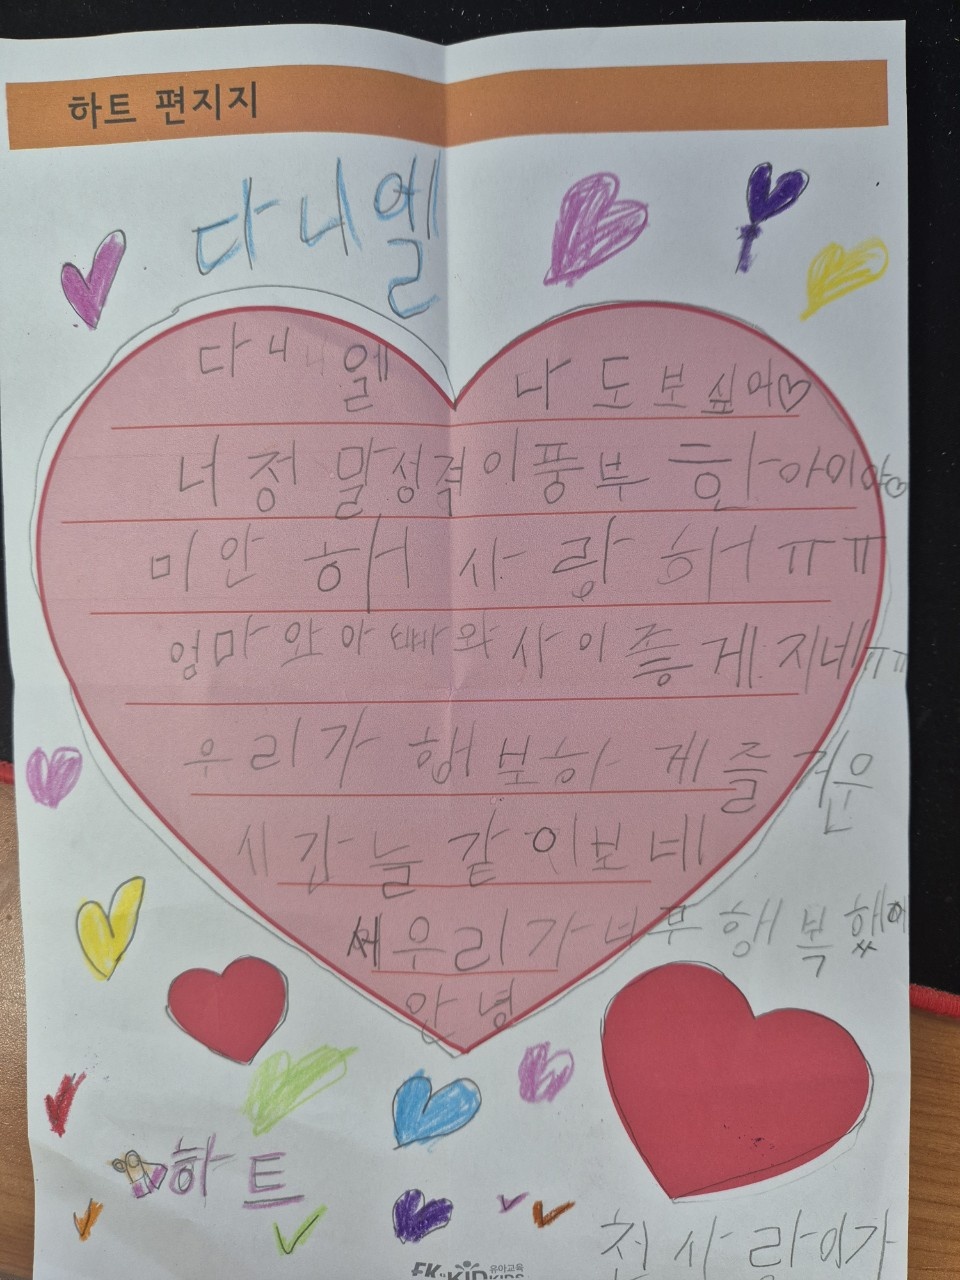 하트 편지지
다니엘
다니엘 나도보싶어♡
너정말성격이풍부한아이야♡
미안해 사랑해ㅠㅠ
엄마와아빠와사이좋게지내ㅠㅠ
우리가행보하게즐거운
시간늘같이보네
쎄우리가너무행복했어
안녕
하트
천사라이가
EK KID KIDS
유아교육